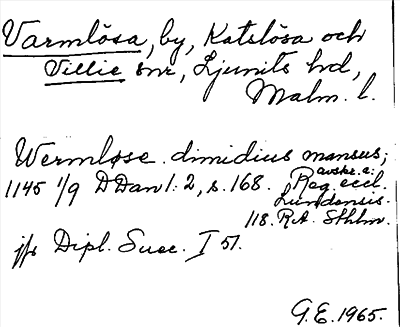 Varmlösa, by, Katslösa och
Villie snr, Ljunits hd,
Malm. l.
Wermløse. dimidius mansus;
1145 1/9 DDan 1:2, s. 168. avskr. i:
Reg. eccl.
Lundensis.
118. RA. Sthlm.
jfr Dipl. Suec. I 51.
G.E. 1965.